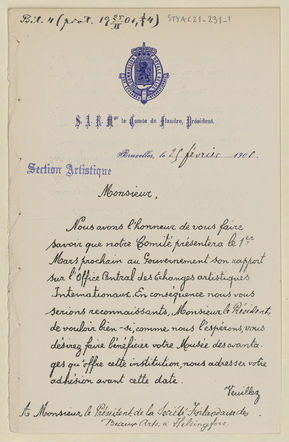 Bil. 4 (prot. 19 25/II 01, § 4)
STYAC21-231-1
S. A. R. Mgr le Comte de Flandre, Président.
Bruxelles, le 25 février 1901.
Section Artistique
Monsieur,
Nous avons l'honneur de vous faire
savoir que notre Comité présentera le 1er
Mars prochain au Gouvernement son rapport
sur l'Office Central des échanges artistiques
Internationaux. En conséquence nous vous
serions reconnaissants, Monsieur le Président,
de vouloir bien-si, comme nous l'espérons, vous
désirez faire bénéficier votre Musée des avanta-
ges qu'offre cette institution, nous adresser votre
adhésion avant cette date.
Veuillez
A Monsieur le Président de la Société Finlandaise des
Beaux Arts, à Helsingfors.